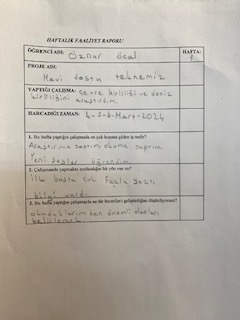 HAFTALIK FAALİYET RAPORU
ÖĞRENCİ ADI: Öznur Öcal
HAFTA:
PROJE ADI:
Mavi dostu teknemiz
YAPTIĞI ÇALIŞMA: çevre kirliliği ve deniz
kirliliğini araştırdım.
HARCADIĞI ZAMAN: 4-5-6-Mart-2024
1. Bu hafta yaptığın çalışmada en çok hoşuna giden iş nedir?
Araştırma yapmak okuma yapmak
Yeni şeyler öğrendim.
2. Çalışmanda yapmakta zorlandığın bir yön var mı?
İlk başta çok fazla yazı
bilgi vardı.
3. Bu hafta yaptığın çalışmayla ne tür beceriler geliştirdiğini düşünüyorsun?
okuduklarımdan önemli olanları
belirlemek